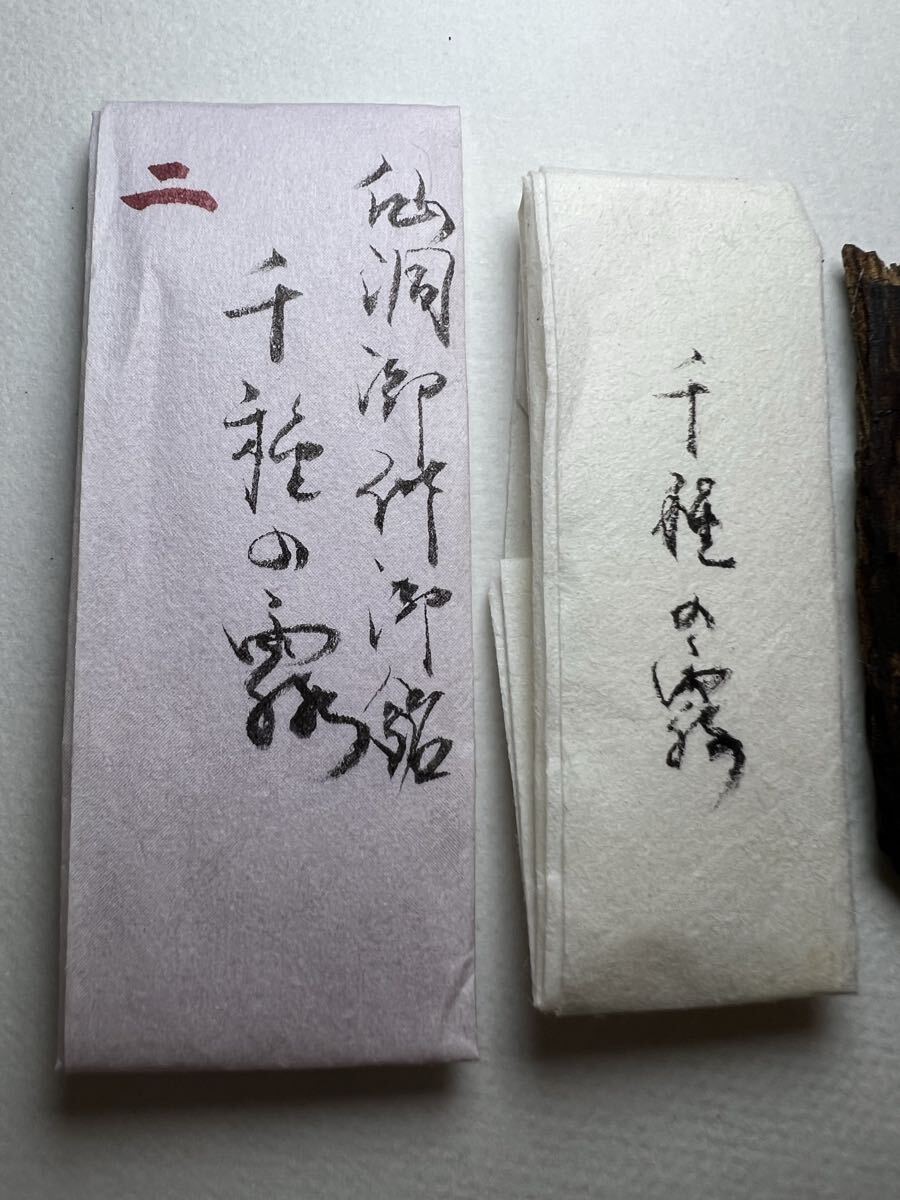 仙洞御所御銘
千種の霧
二
千種の霧